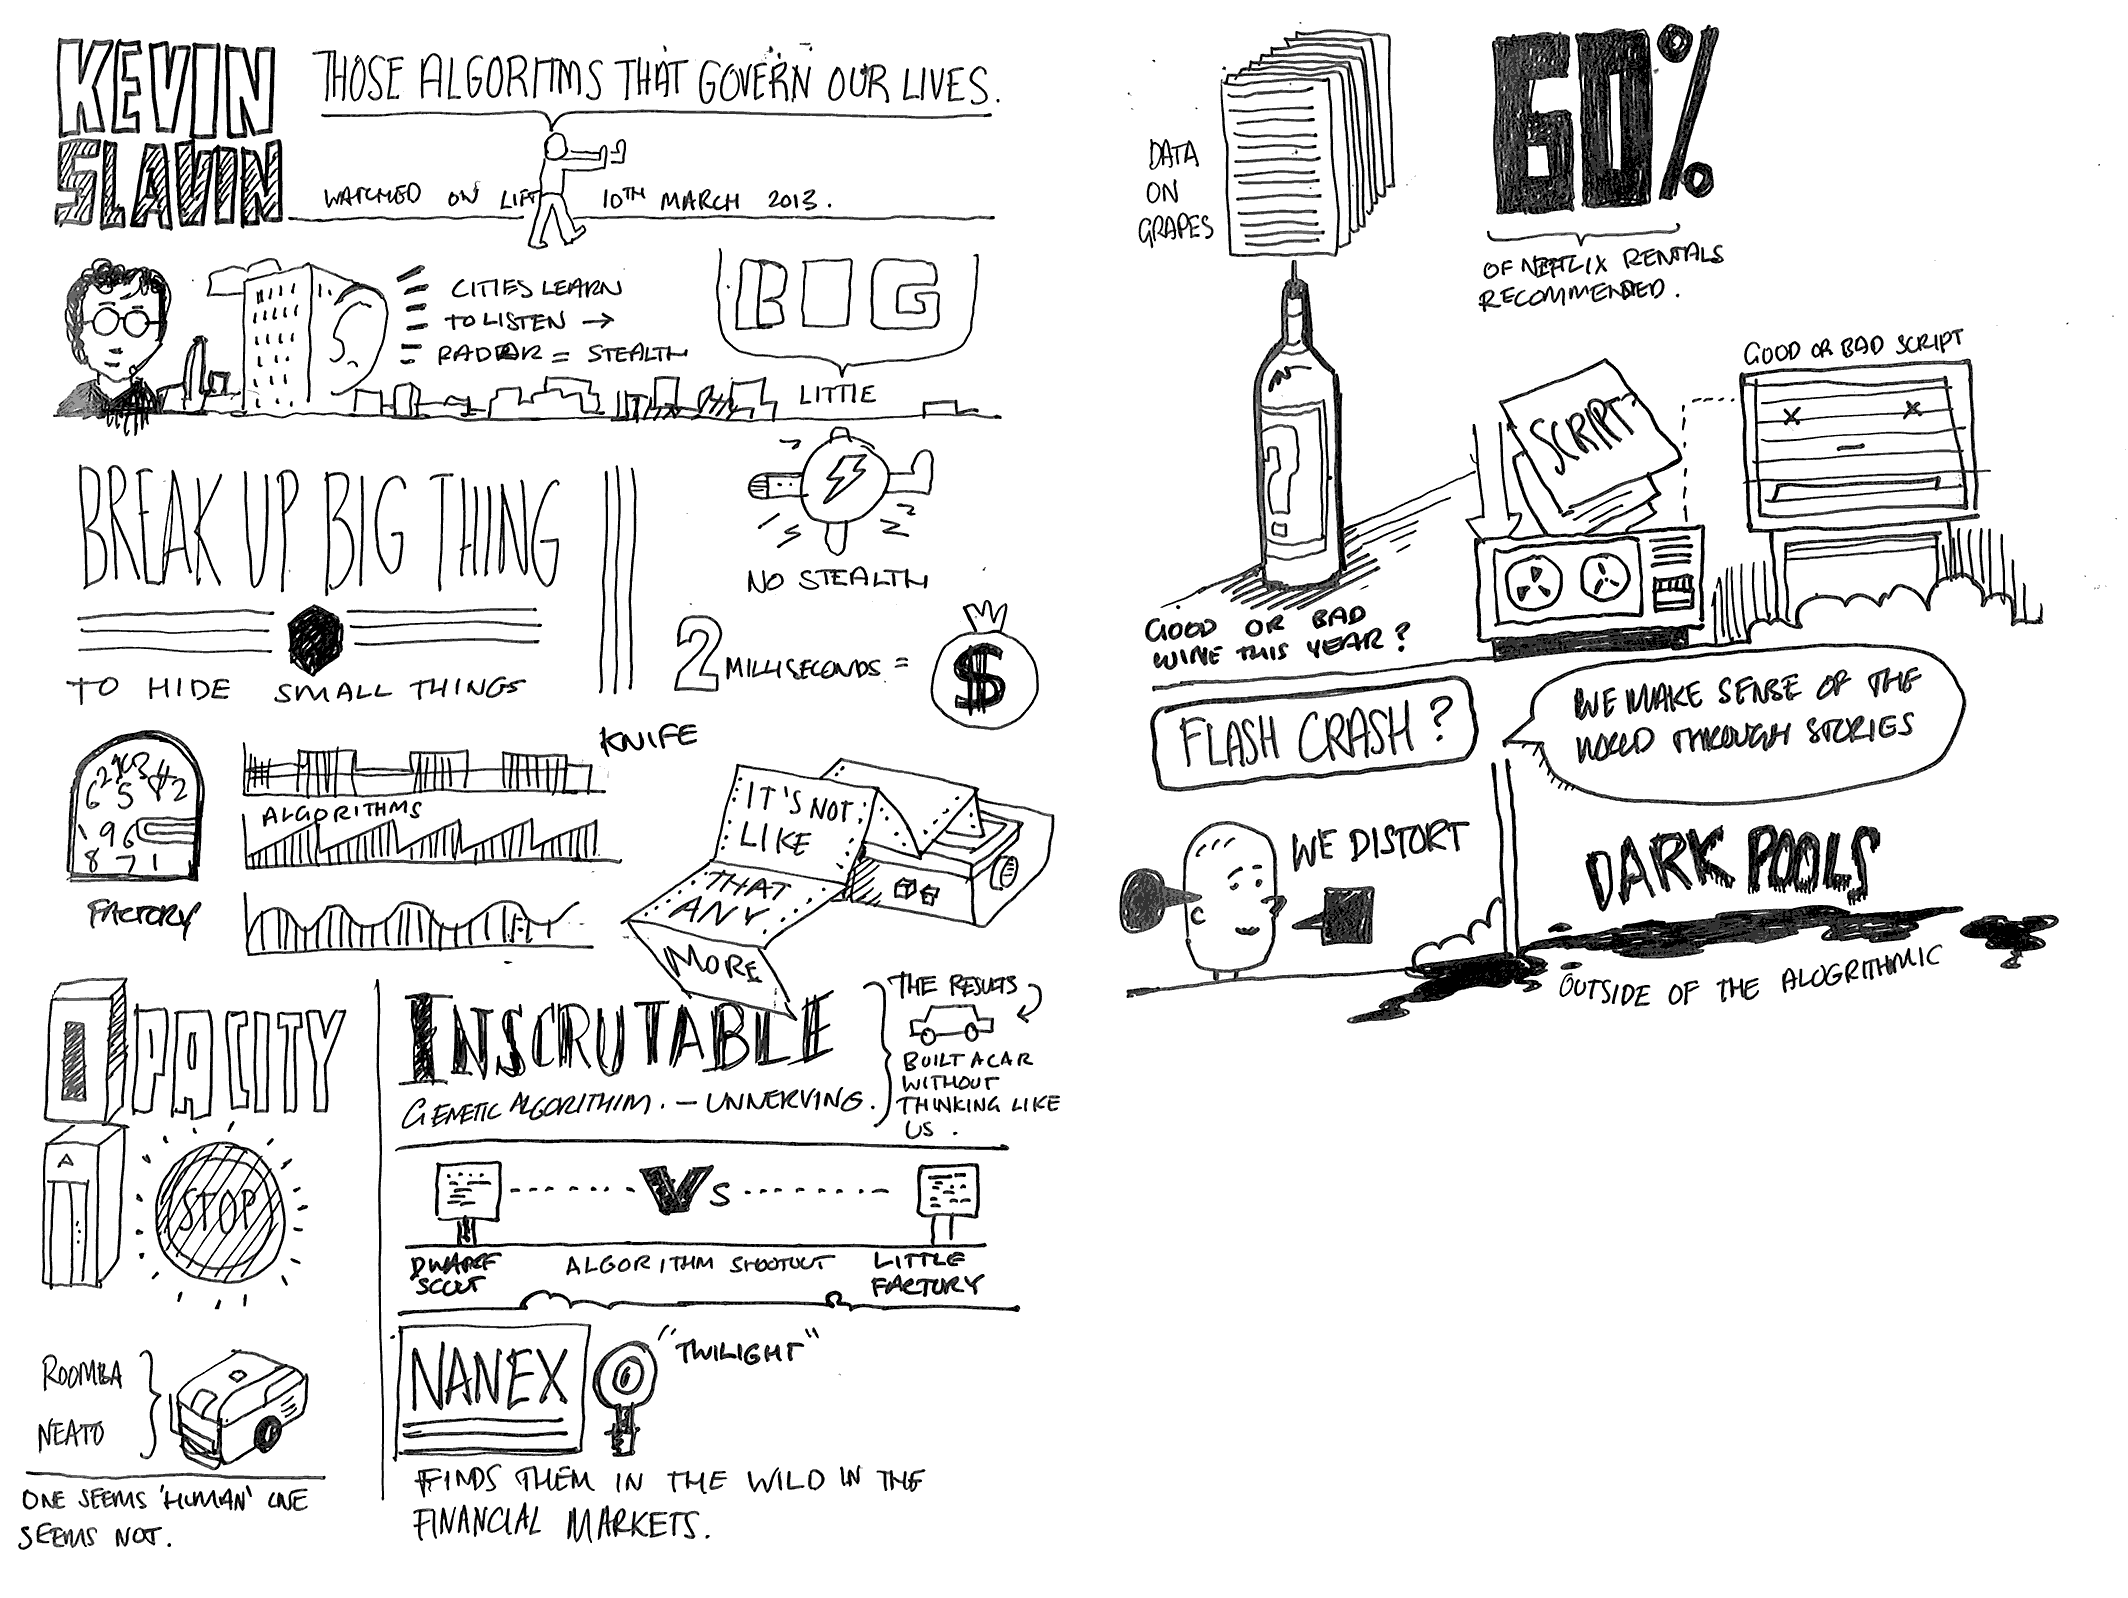 KEVIN
SLAVIN
THOSE ALGORITMS THAT GOVERN OUR LIVES.
WATCHED ON LIFT 10TH MARCH 2013.
CITIES LEARN
TO LISTEN →
RADAR = STEALTH
BIG
LITTLE
BREAK UP BIG THING
TO HIDE SMALL THINGS
NO STEALTH
2 MILLISECONDS = $
KNIFE
FACTORY
ALGORITHMS
IT'S NOT
LIKE
THAT
ANY
MORE
OPACITY
STOP
ROOMBA
NEATO
ONE SEEMS 'HUMAN' ONE
SEEMS NOT.
INSCRUTABLE
GENETIC ALGORITHIM. — UNNERVING.
THE RESULTS
BUILT A CAR
WITHOUT
THINKING LIKE
US.
VS
DWARF
SCOUT
ALGORITHM SHOOTOUT
LITTLE
FACTORY
NANEX
"TWILIGHT"
FINDS THEM IN THE WILD IN THE
FINANCIAL MARKETS.
DATA
ON
GRAPES
60%
OF NETFLIX RENTALS
RECOMMENDED.
?
GOOD OR BAD
WINE THIS YEAR?
SCRIPT
GOOD OR BAD SCRIPT
FLASH CRASH?
WE MAKE SENSE OF THE
WORLD THROUGH STORIES
WE DISTORT
DARK POOLS
OUTSIDE OF THE ALOGRITHMIC